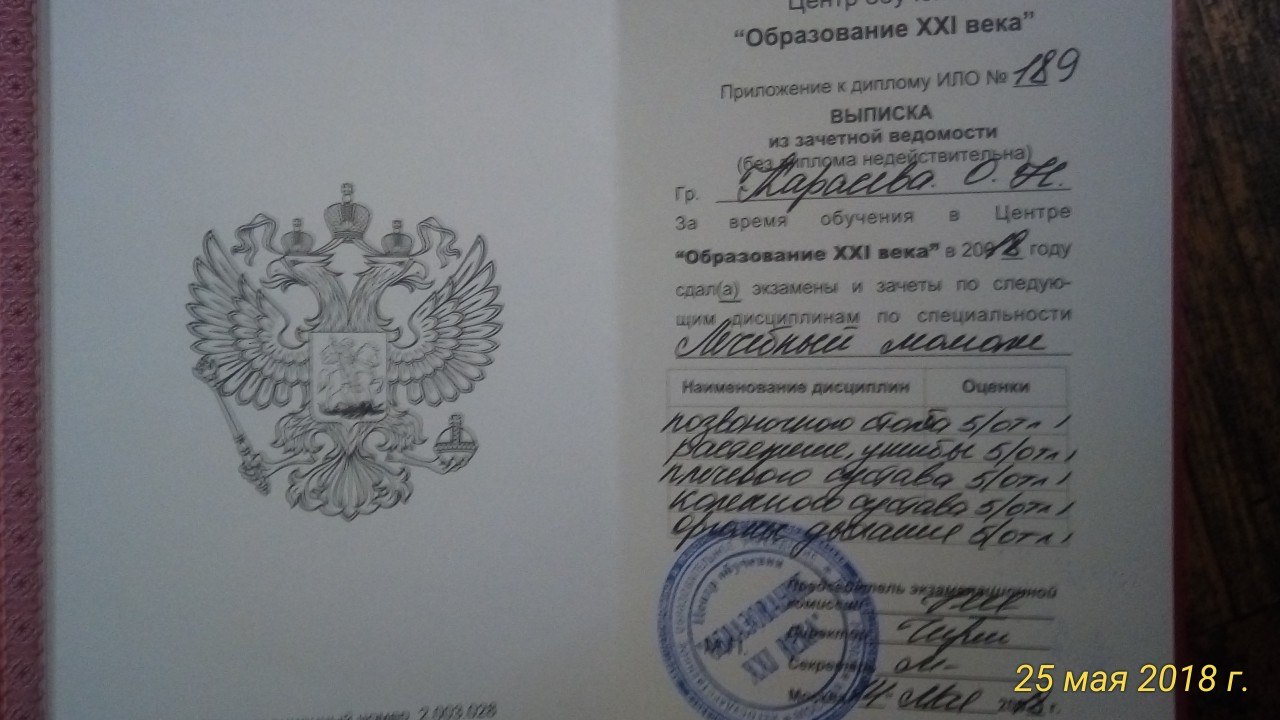 Центр обучения
“Образование XXI века”
Приложение к диплому ИЛО № 189
ВЫПИСКА
из зачетной ведомости
(без диплома недействительна)
Гр. Карасева О. Н.
За время обучения в Центре
“Образование XXI века” в 2018 году
сдал(а) экзамены и зачеты по следую-
щим дисциплинам по специальности
Лечебный массаж
Наименование дисциплин Оценки
позвоночного столба 5/отл/
растяжение, ушибы 5/отл/
плечевого сустава 5/отл/
коленного сустава 5/отл/
органы дыхания 5/отл/
Председатель экзаменационной
комиссии
Директор
Секретарь
Москва мая г.
Центр обучения
“ОБРАЗОВАНИЕ
XXI ВЕКА”
номер 2 003 028
25 мая 2018 г.